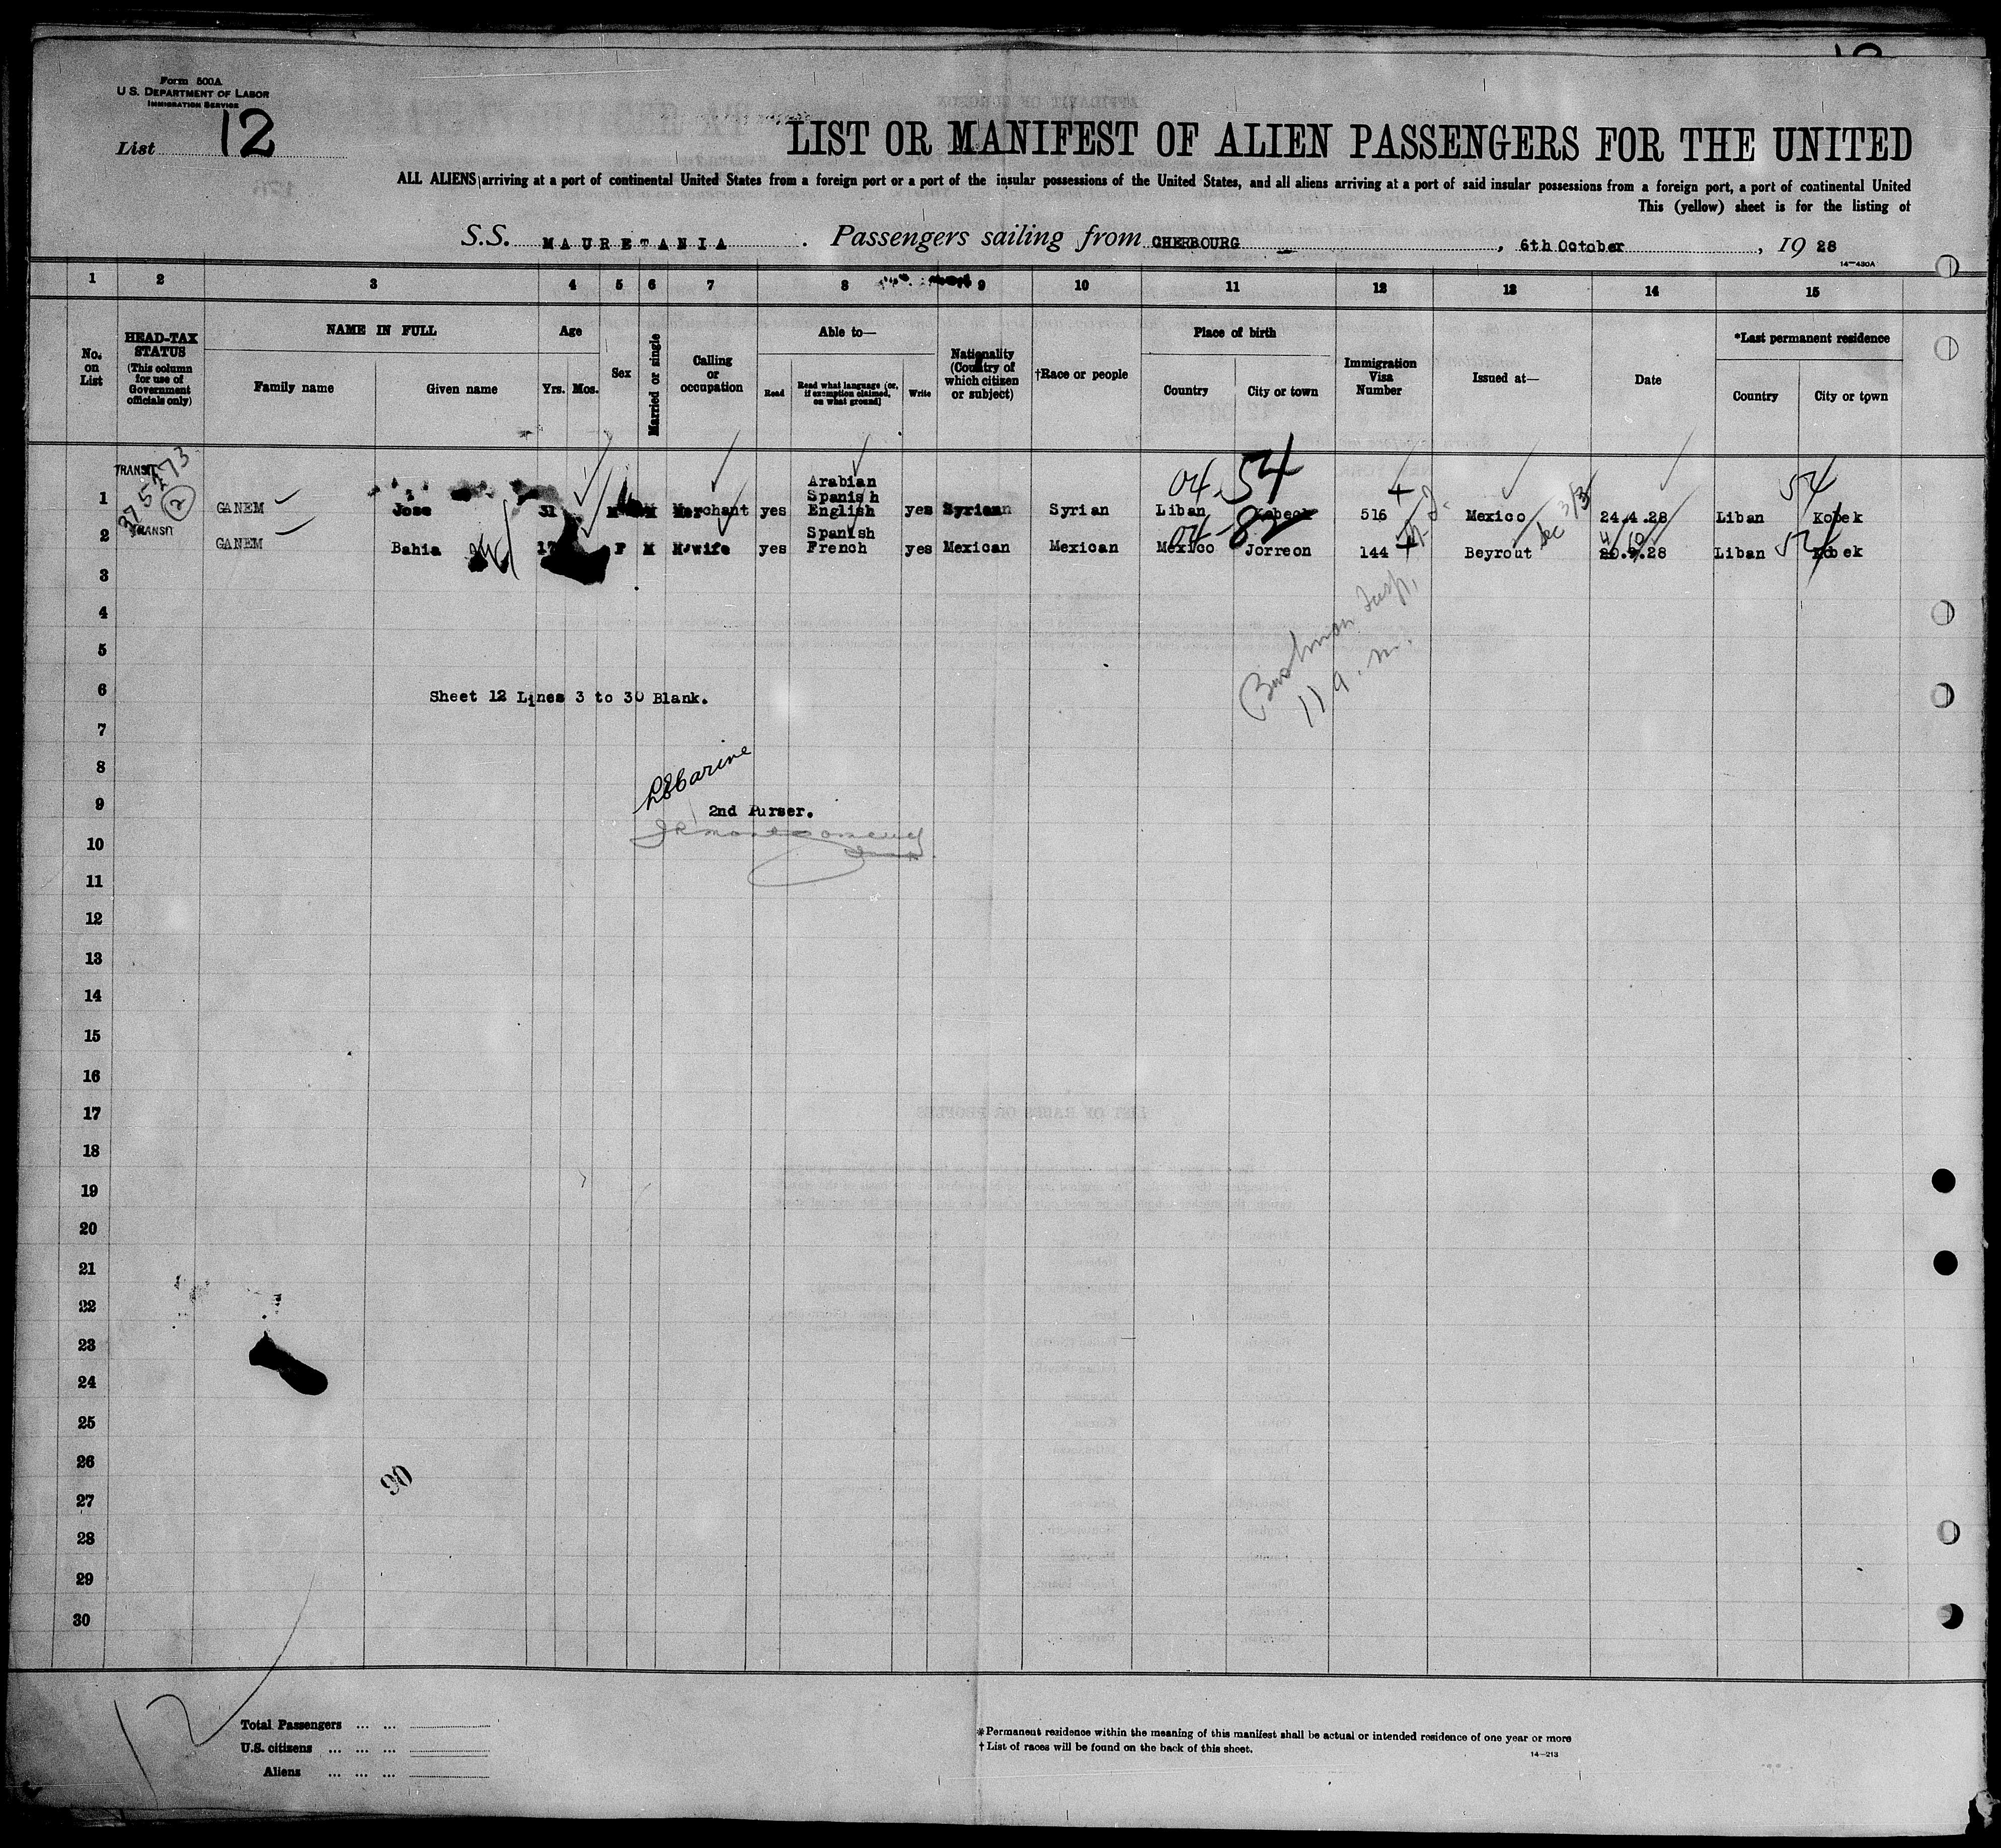 Form 500A
U.S. DEPARTMENT OF LABOR
IMMIGRATION SERVICE
List 12
LIST OR MANIFEST OF ALIEN PASSENGERS FOR THE UNITED
ALL ALIENS arriving at a port of continental United States from a foreign port or a port of the insular possessions of the United States, and all aliens arriving at a port of said insular possessions from a foreign port, a port of continental United
This (yellow) sheet is for the listing of
S.S. MAURETANIA. Passengers sailing from CHERBOURG, 6th October, 1928
14—430A
1 2 3 4 5 6 7 8 9 10 11 12 13 14 15
No. on List
HEAD-TAX STATUS (This column for use of Government officials only)
NAME IN FULL
Family name Given name
Age
Yrs. Mos.
Sex
Married or single
Calling or occupation
Able to—
Read Read what language [or, if exemption claimed, on what ground] Write
Nationality (Country of which citizen or subject)
†Race or people
Place of birth
Country City or town
Immigration Visa Number
Issued at—
Date
*Last permanent residence
Country City or town
375273
2
04 54 54
1 TRANSIT GANEM Jose 31 M M Merchant yes Arabian Spanish English yes Syrian Syrian Liban 516 Mexico 24.4.28 Liban Kobek
04-82 54
2 TRANSIT GANEM Bahia 17 F M H.wife yes Spanish French yes Mexican Mexican Mexico Jorreon 144 Beyrout 20.9.28 Liban Kobek
3
4
5
6 Sheet 12 Lines 3 to 30 Blank.
11 a.m.
7
8
9 2nd Purser.
10
11
12
13
14
15
16
17
18
19
20
21
22
23
24
25
26
90
27
28
29
30
12
Total Passengers ... ...
U.S. citizens ... ... ...
Aliens ... ... ...
*Permanent residence within the meaning of this manifest shall be actual or intended residence of one year or more
†List of races will be found on the back of this sheet.
14—213